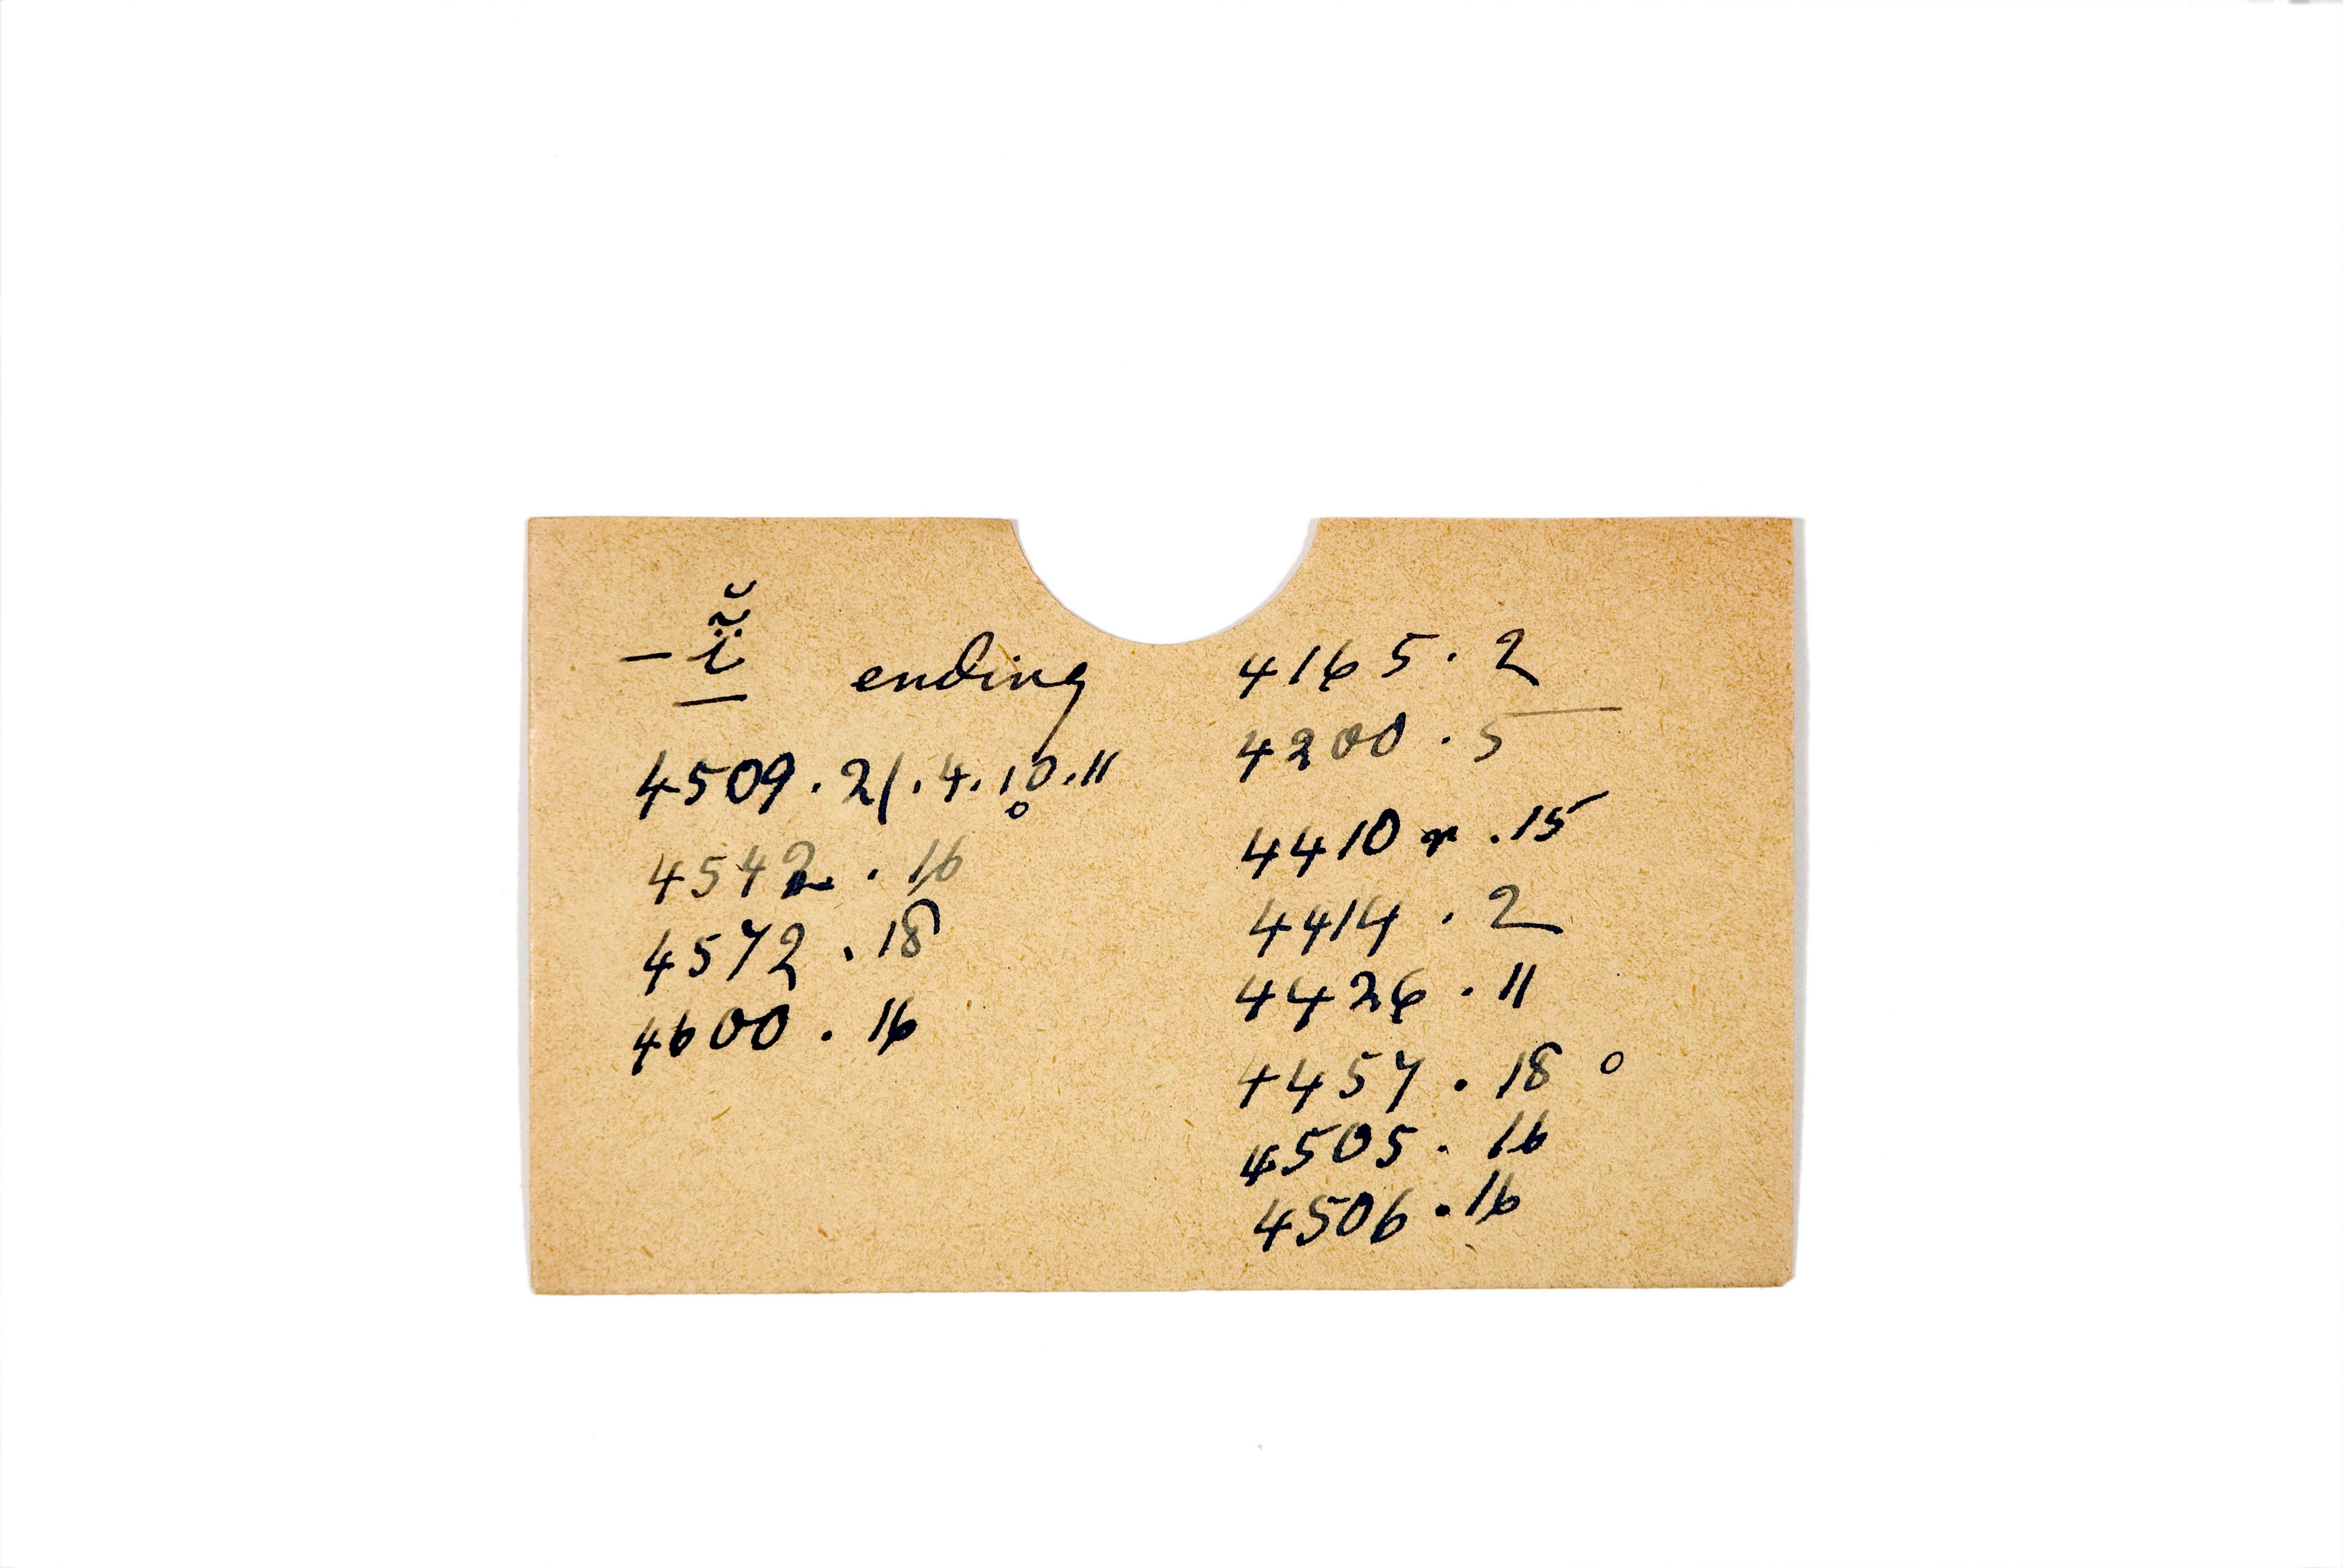 – ï̯̃̆ ending
4509 . 2(. 4. 10. 11
4542 . 16
4572 . 18
4600 . 16
4165 . 2
4200 . 5
4410 r . 15
4414 . 2
4426 . 11
4457 . 18 o
4505 . 16
4506 . 16